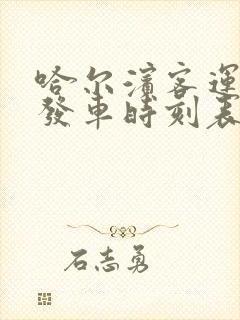 哈尔濱客運
發車時刻表
石志勇